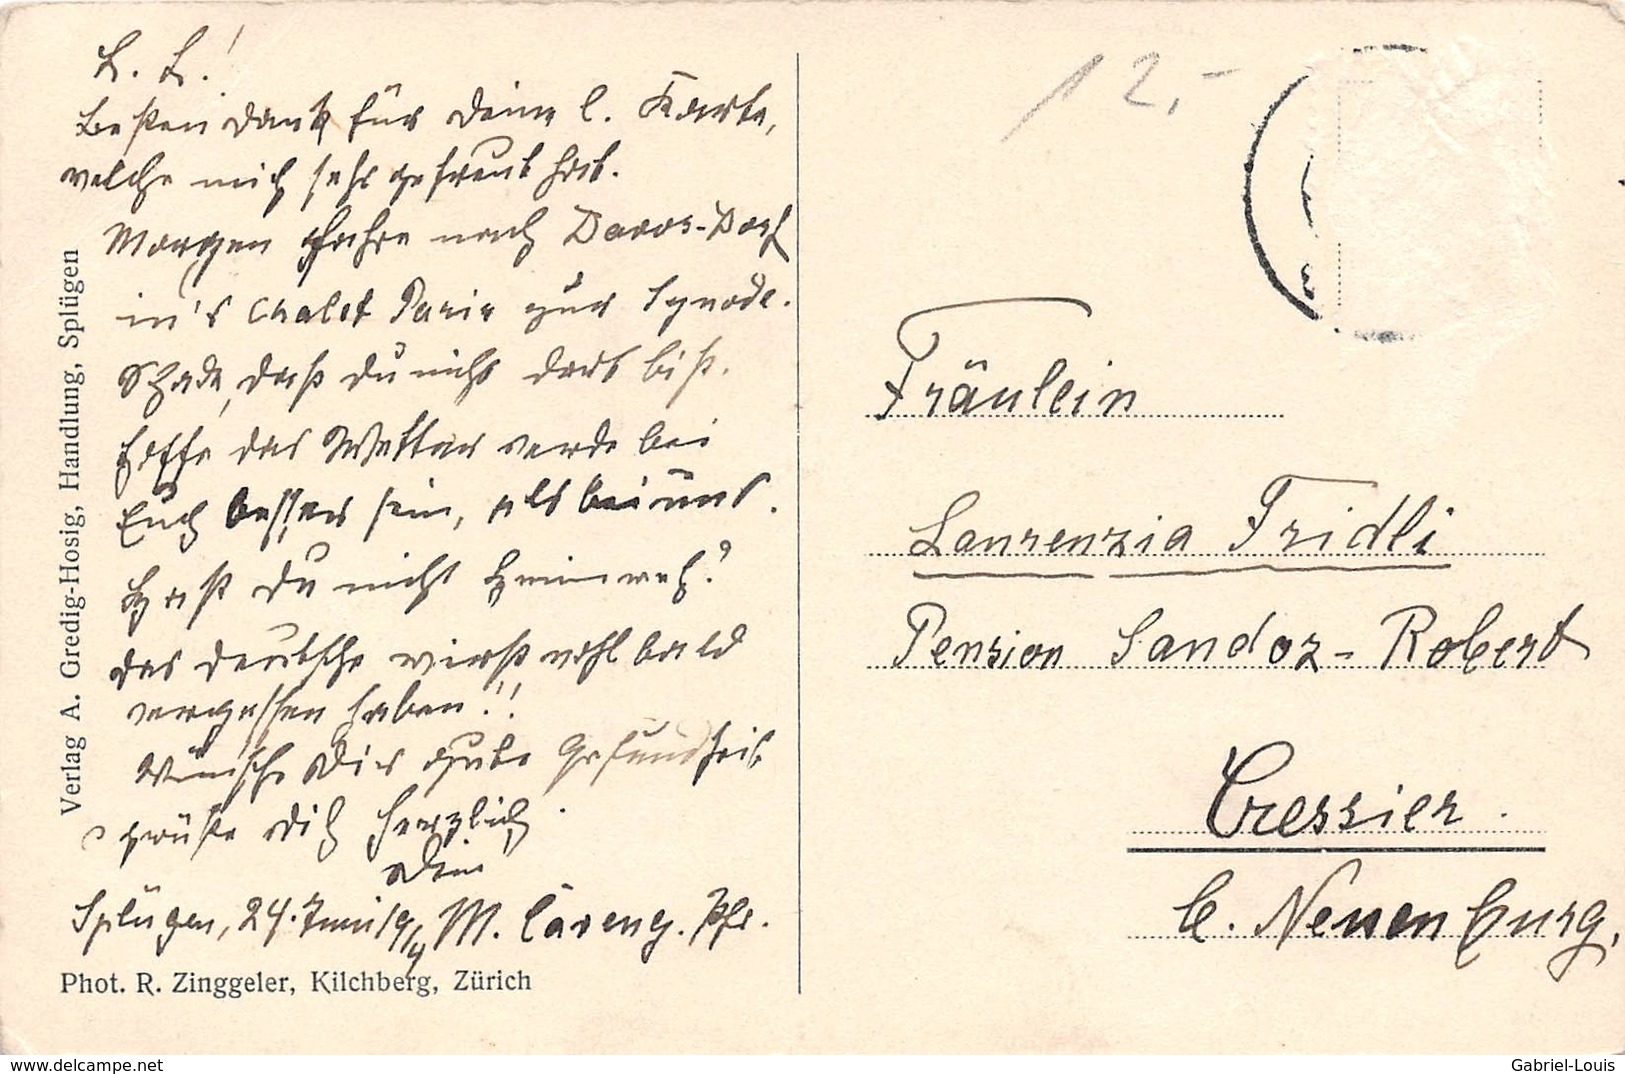 L. L.!
Besten Dank für Deine l. Karte,
welche mich sehr gefreut hat.
Morgen fahre nach Davos-Dorf
in's Chalet Paris zur Synode.
Schade, daß Du nicht dort bist.
Hoffe das Wetter werde bei
Euch besser sein, als bei uns.
Hast Du nicht Heimweh?
das deutsche wirst wohl bald
vergessen haben!!
Wünsche Dir gute Gesundheit
grüße Dich herzlich.
Dein
Splügen, 24. Juni 19 M. Caveng. Pfr.
Verlag A. Gredig-Hosig, Handlung, Splügen
Phot. R. Zinggeler, Kilchberg, Zürich
12,-
Fräulein
Laurenzia Fridli
Pension Sandoz-Robert
Cressier.
C. Neuenburg,
www.delcampe.net
Gabriel-Louis